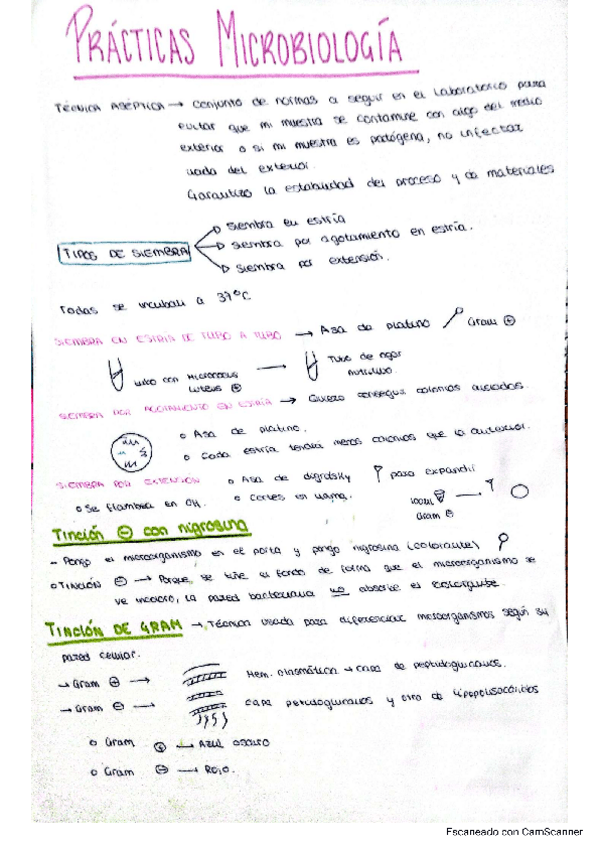 PRÁCTICAS MICROBIOLOGÍA
TÉCNICA ASÉPTICA → Conjunto de normas a seguir en el laboratorio para
evitar que mi muestra se contamine con algo del medio
exterior o si mi muestra es patógena, no infectar
nada del exterior.
Garantizo la estabilidad del proceso y de materiales
TIPOS DE SIEMBRA
→ Siembra en estría
→ Siembra por agotamiento en estría.
→ Siembra por extensión.
Todas se incuban a 37ºC
SIEMBRA EN ESTRIA DE TUBO A TUBO → Asa de platino Gram ⊕
tubo con Micrococcus luteus ⊕ → Tubo de agar nutritivo.
SIEMBRA POR AGOTAMIENTO EN ESTRÍA → Quiero conseguir colonias aisladas
o Asa de platino.
o Cada estría tendrá menos colonias que la anterior.
SIEMBRA POR EXTENSIÓN o Asa de digralsky para expandir
o Se flambea en OH. o Cortes en llama. Gram ⊖
TINCIÓN ⊖ con nigrosina
- Pongo el microorganismo en el porta y pongo nigrosina (colorante)
o TINCIÓN ⊖ → Porque se tiñe el fondo de forma que el microorganismo se
ve incoloro, la pared bacteriana no absorbe el colorante.
TINCIÓN DE GRAM → Técnica usada para diferenciar microorganismos según su
pared celular.
→ Gram ⊕ → Mem. plasmática + capa de peptidoglucanos.
→ Gram ⊖ → capa peptidoglucanos y otra de lipopolisacáridos
o Gram ⊕ → AZUL OSCURO
o Gram ⊖ → ROJO.
Escaneado con CamScanner